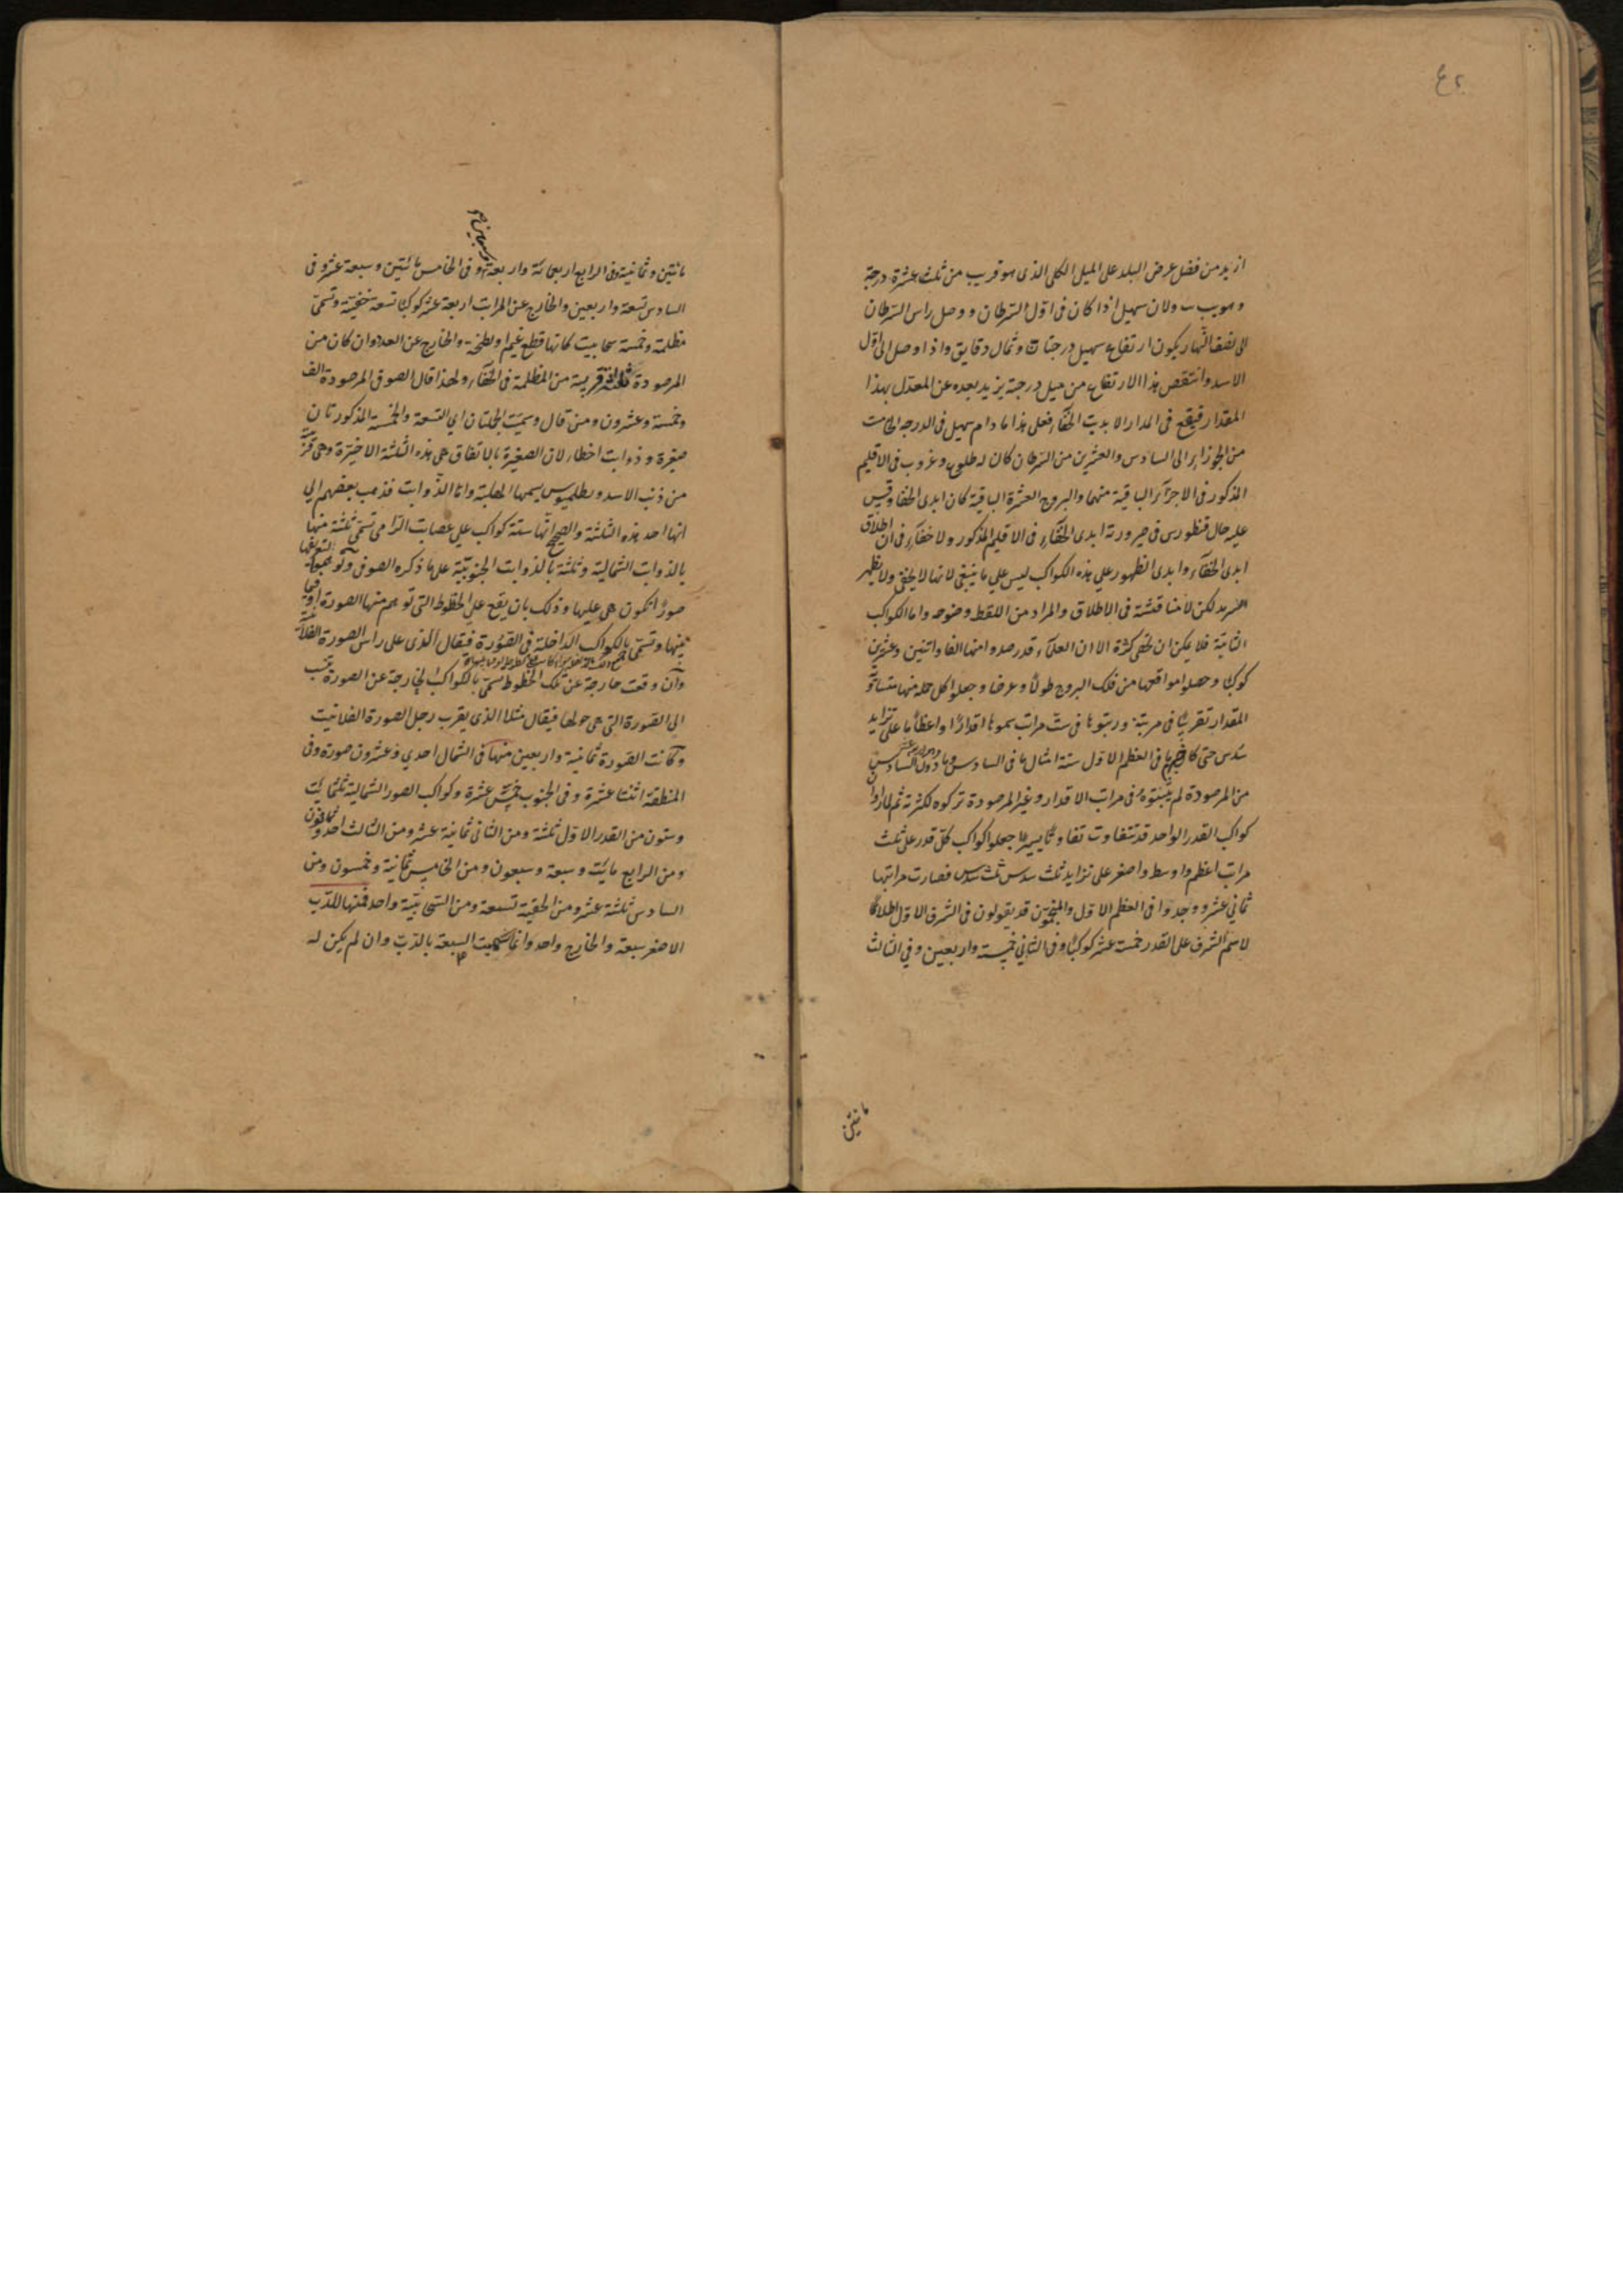 ازيد من فضل عرض البلد على الميل الكلى الذى هو قريب من ثلث عشرة درجة
ولان سهيل اذا كان فى اول السرطان ووصل راس السرطان
الى نصف النهار يكون ارتفاع سهيل درجتان وثمان دقايق واذا وصل الى اول
الاسد وانتقص هذا الارتفاع من ميل درجة يزيد بعده عن المعدل بهذا
المقدار فيقع فى المدار الابدية الخفاء فعلى هذا ما دام سهيل فى الدرجة
من الجوزاء الى السادس والعشرين من السرطان كان له طلوع وغروب فى الاقليم
المذكور فى الاجزاء الباقية منهما والبروج العشرة الباقية كان ابدى الخفا وقس
عليه حال قنطورس فى صيرورته ابدى الخفاء فى الاقليم المذكور ولا خفاء فى ان اطلاق
ابدى الخفاء وابدى الظهور على هذه الكواكب ليس على ما ينبغى لانها لا يخفى ولا يظهر
لكن لا مناقشة فى الاطلاق والمراد من اللفظ وضوحه واما الكواكب
الثابتة فلا يمكن ان تحصى كثرة الا ان العلماء قد رصدوا منها الفا واثنين وعشرين
كوكبا وحصلوا مواقعها من فلك البروج طولا وعرضا وجعلوا كل جملة منها متساوى
المقدار تقريبا فى مرتبة ورتبوها فى ست مراتب سموها اقدارا واعظاما على تزايد
سدس حتى كان ما فى العظم الاول ستة امثال ما فى السادس وما دون السادس
من المرصودة لم يثبتوه فى مراتب الاقدار وغير المرصودة تركوه لكثرته ثم لما راوا
كواكب القدر الواحد قد تتفاوت تفاوتا يسيرا جعلوا كواكب كل قدر على ثلث
مراتب اعظم واوسط واصغر على تزايد ثلث سدس ثلث سدس فصارت مراتبها
ثمانى عشر ووجدوا فى العظم الاول والمنجمون قد يقولون فى الشرف الاول اطلاقا
لاسم الشرف على القدر خمسة عشر كوكبا وفى الثانى خمسة واربعين وفى الثالث
مائتين
مائتين وثمانية وفى الرابع اربعمائة واربعة وفى الخامس مائتين وسبعة عشر وفى
السادس تسعة واربعين والخارج عن المراتب اربعة عشر كوكبا تسعة خفية وتسمى
مظلمة وخمسة سحابية كانها قطع غيم او لطخة والخارج عن العد وان كان من
المرصودة ثلثة قريبة من المظلمة فى الخفاء ولهذا قال الصوفى المرصودة الف
وخمسة وعشرون ومن قال وسميت الجملتان اى التسعة والخمسة المذكورتان
صفيرة وذوابة اخطاء لان الصفيرة بالاتفاق هى هذه الثلثة الاخيرة وهى قريبة
من ذنب الاسد وبطلميوس يسميها الهلبة واما الذوابة فذهب بعضهم الى
انها احد هذه الثلثة والصحيح انها ستة كواكب على عصابة الرامى تسمى ثلثة منها
بالذوابة الشمالية وثلثة بالذوابة الجنوبية على ما ذكره الصوفى
صورا تكون هى عليها وذلك بان يقع على الخطوط التى توهم منها الصورة او فيما
بينها وتسمى بالكواكب الداخلة فى الصورة فيقال الذى على راس الصورة الفلانية
وان وقعت خارجة عن تلك الخطوط تسمى بالكواكب الخارجة عن الصورة تنسب
الى الصورة التى هى حولها فيقال مثلا الذى يقرب رجل الصورة الفلانية
وكانت الصورة ثمانية واربعين منها فى الشمال احدى وعشرون صورة وفى
المنطقة اثنتا عشرة وفى الجنوب خمس عشرة وكواكب الصور الشمالية ثلثمائة
وستون من القدر الاول ثلثة ومن الثانى ثمانية عشر ومن الثالث احد وثمانون
ومن الرابع مائة وسبعة وسبعون ومن الخامس ثمانية وخمسون ومن
السادس ثلثة عشر ومن الخفية تسعة ومن السحابية واحد فمنها للدب
الاصغر سبعة والخارج واحد وانما سميت السبعة بالدب وان لم يكن له